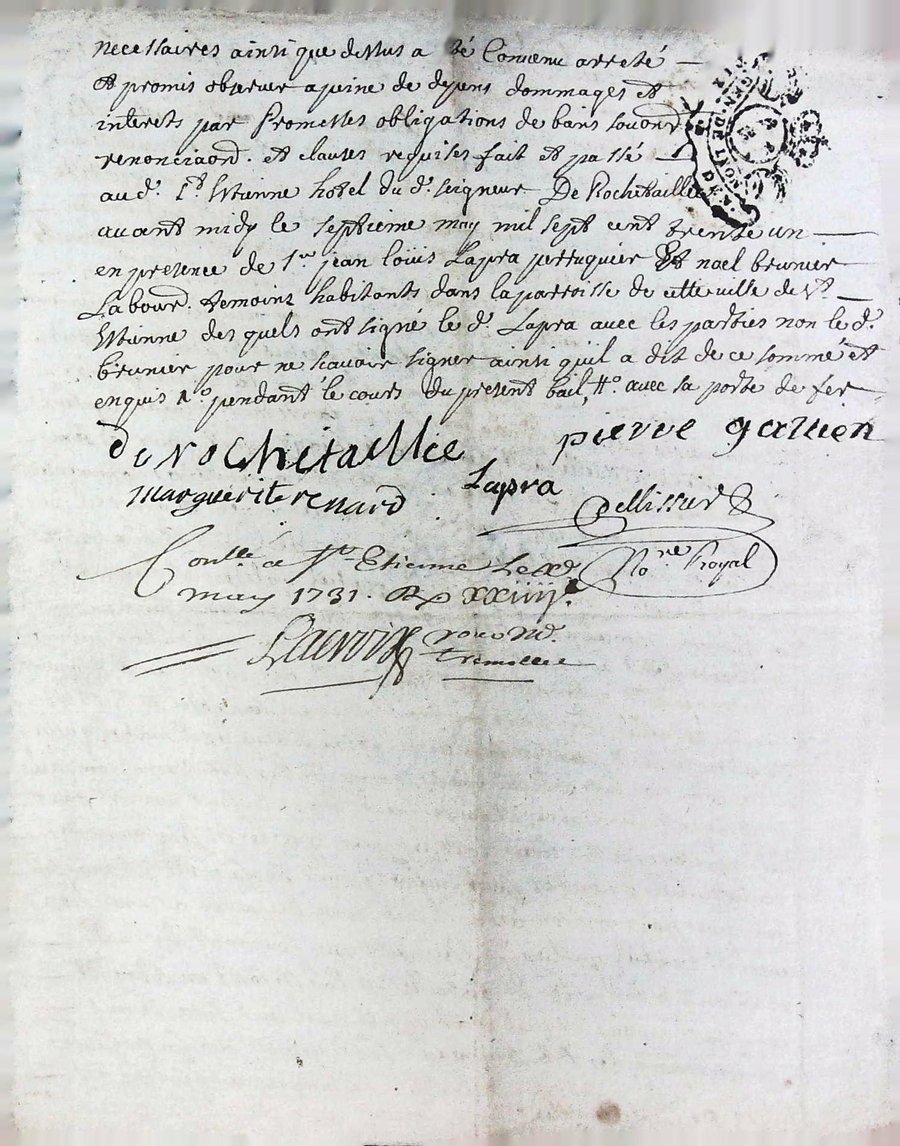 necessaires ainsi que dessus a eté Convenu arreté —
et promis observer a peine de depens dommages et
interets par Promesses obligations de biens
renonciaõns. et clauses requises fait et passé —
aud. St. Etienne hotel du d. seigneur De Rochetaillée
avant midy le septieme may mil sept cent trente un —
en presence de Sr. jean loüis Lapra perruquier Et noel brunier
Labour. temoins habitants dans la parroisse de cette ville de St. —
Etienne des quels ont signé le d. Lapra avec les parties non le d.
brunier pour ne scavoir signer ainsi quil a dit de ce sommé et
enquis 1º pendant le cours du present bail, 4º avec sa porte de fer
de Rochetaillée
pierve gallien
marguerite renard
Lapra
Pellissier
Nore Royal
Conllé a St. Etienne Le
may 1731. R xxiiii s.
Lacroix